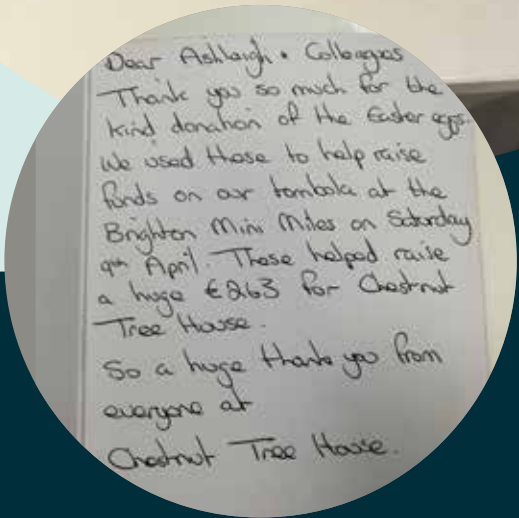 Dear Ashleigh + Colleagues
Thank you so much for the
kind donation of the Easter eggs.
We used these to help raise
funds on our tombola at the
Brighton Mini Miles on Saturday
9th April. These helped raise
a huge £263 for Chestnut
Tree House.
So a huge thank you from
everyone at
Chestnut Tree House.